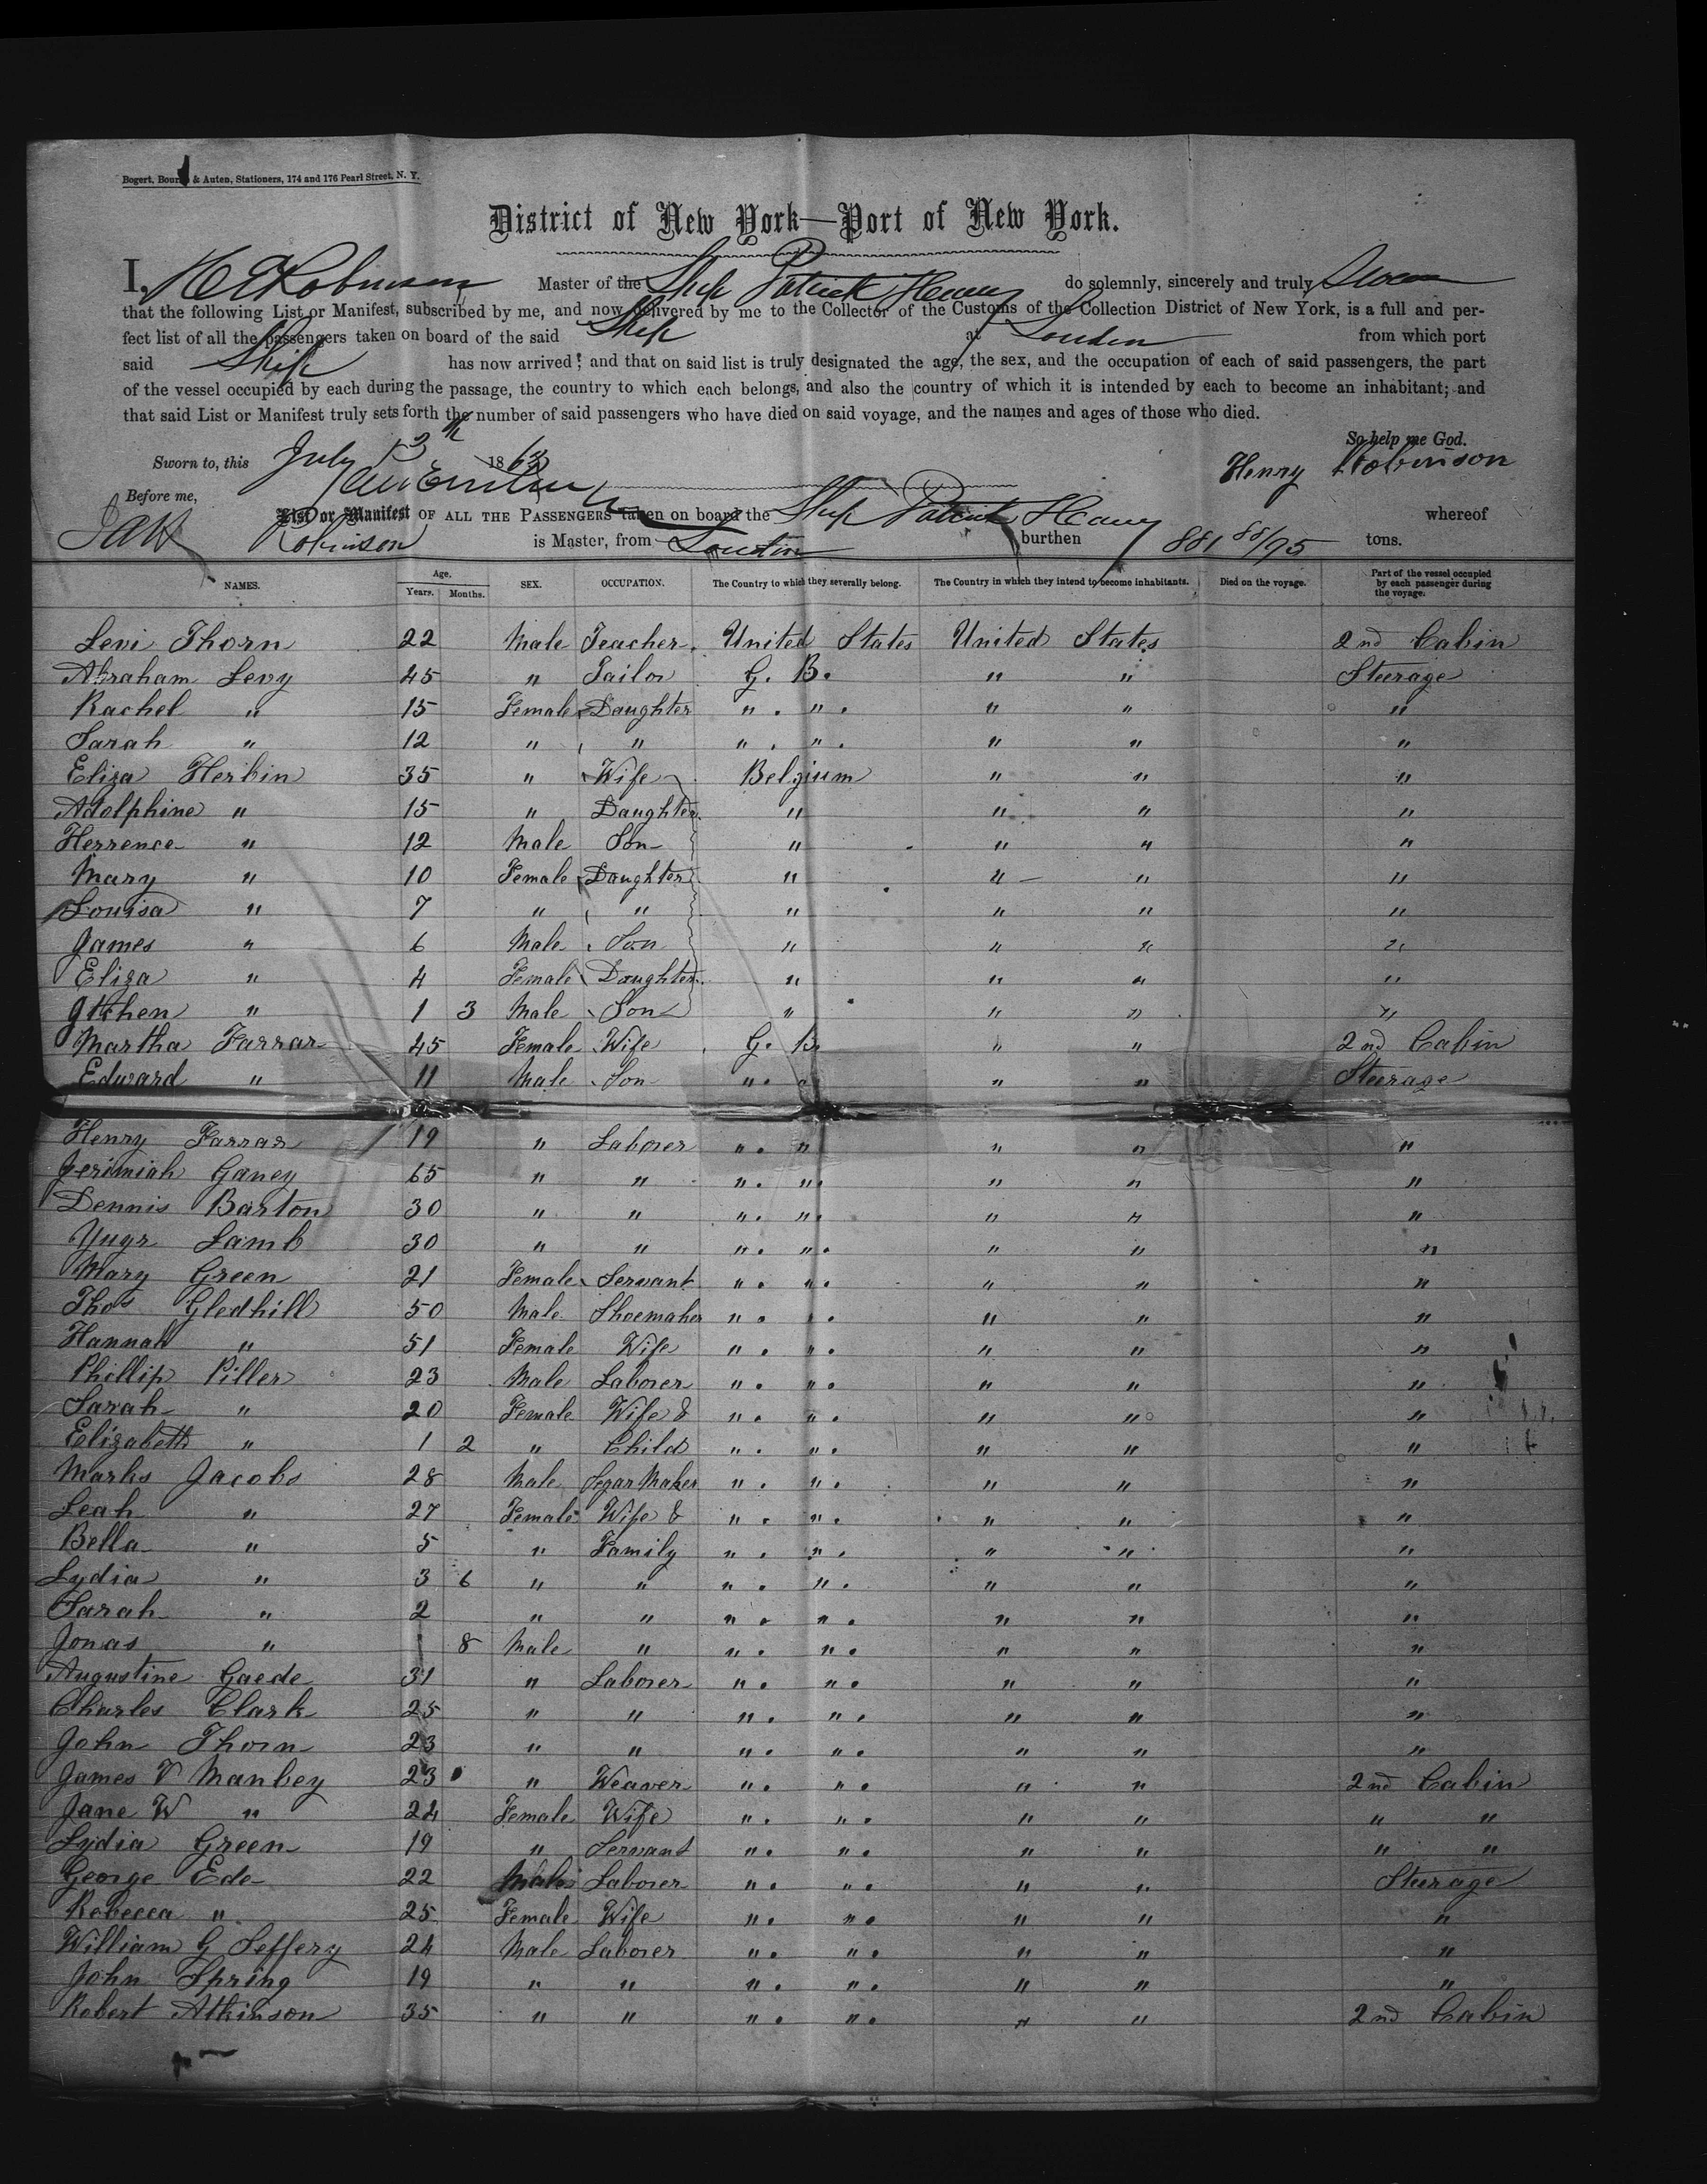 Bogert, Bourne & Auten, Stationers, 174 and 176 Pearl Street, N. Y.
District of New York—Port of New York.
I, Robinson Master of the Ship Patrick Henry do solemnly, sincerely and truly Swear
that the following List or Manifest, subscribed by me, and now delivered by me to the Collector of the Customs of the Collection District of New York, is a full and per-
fect list of all the passengers taken on board of the said Ship at London from which port
said Ship has now arrived; and that on said list is truly designated the age, the sex, and the occupation of each of said passengers, the part
of the vessel occupied by each during the passage, the country to which each belongs, and also the country of which it is intended by each to become an inhabitant; and
that said List or Manifest truly sets forth the number of said passengers who have died on said voyage, and the names and ages of those who died.
So help me God.
Sworn to, this July 13th 186 Henry Robinson
Before me,
List or Manifest OF ALL THE PASSENGERS taken on board the Ship Patrick Henry whereof
Robinson is Master, from London burthen 881 88/95 tons.
NAMES. Age. Years. Months. SEX. OCCUPATION. The Country to which they severally belong. The Country in which they intend to become inhabitants. Died on the voyage. Part of the vessel occupied by each passenger during the voyage.
Levi Thorn 22 Male Teacher United States United States 2nd Cabin
Abraham Levy 45 " Tailor G. B. " " Steerage
Rachel " 15 Female Daughter " . " . " " "
Sarah " 12 " " " . " . " " "
Eliza Herbin 35 " Wife Belgium " " "
Adolphine " 15 " Daughter " " " "
Herrence " 12 Male Son " " " "
Mary " 10 Female Daughter " " " "
Louisa " 7 " " " " " "
James " 6 Male Son " " " "
Eliza " 4 Female Daughter " " " "
" 1 3 Male Son " " " "
Martha Farrar 45 Female Wife G. B. " " 2nd Cabin
Edward " 11 Male Son " . " " " Steerage
Henry Farrar 19 " Laborer " . " " " "
Jerimiah Ganey 65 " " " . " . " " "
Dennis Barton 30 " " " . " . " " "
Lamb 30 " " " . " . " " "
Mary Green 21 Female Servant " . " . " " "
Thos Gledhill 50 Male Shoemaker " . " . " " "
Hannah " 51 Female Wife " . " . " " "
Phillip Piller 23 Male Laborer " . " . " " "
Sarah " 20 Female Wife & " . " . " " "
Elizabeth " 1 2 " Child " . " . " " "
Marks Jacobs 28 Male Segar Maker " . " . " " "
Leah " 27 Female Wife & " . " . " " "
Bella " 5 " Family " . " . " " "
Lydia " 3 6 " " " . " . " " "
Sarah " 2 " " " . " . " " "
Jonas " 8 Male " " . " . " " "
Augustine Gaede 31 " Laborer " . " . " " "
Charles Clark 25 " " " . " . " " "
John Thorn 23 " " " . " . " " "
James V Manbey 23 " Weaver " . " . " " 2nd Cabin
Jane W " 24 Female Wife " . " . " " " "
Lydia Green 19 " Servant " . " . " " " "
George Ede 22 Male Laborer " . " . " " Steerage
Rebecca " 25 Female Wife " . " . " " "
William G Seffery 24 Male Laborer " . " . " " "
John Spring 19 " " " . " . " " "
Robert Atkinson 35 " " " . " . " " 2nd Cabin